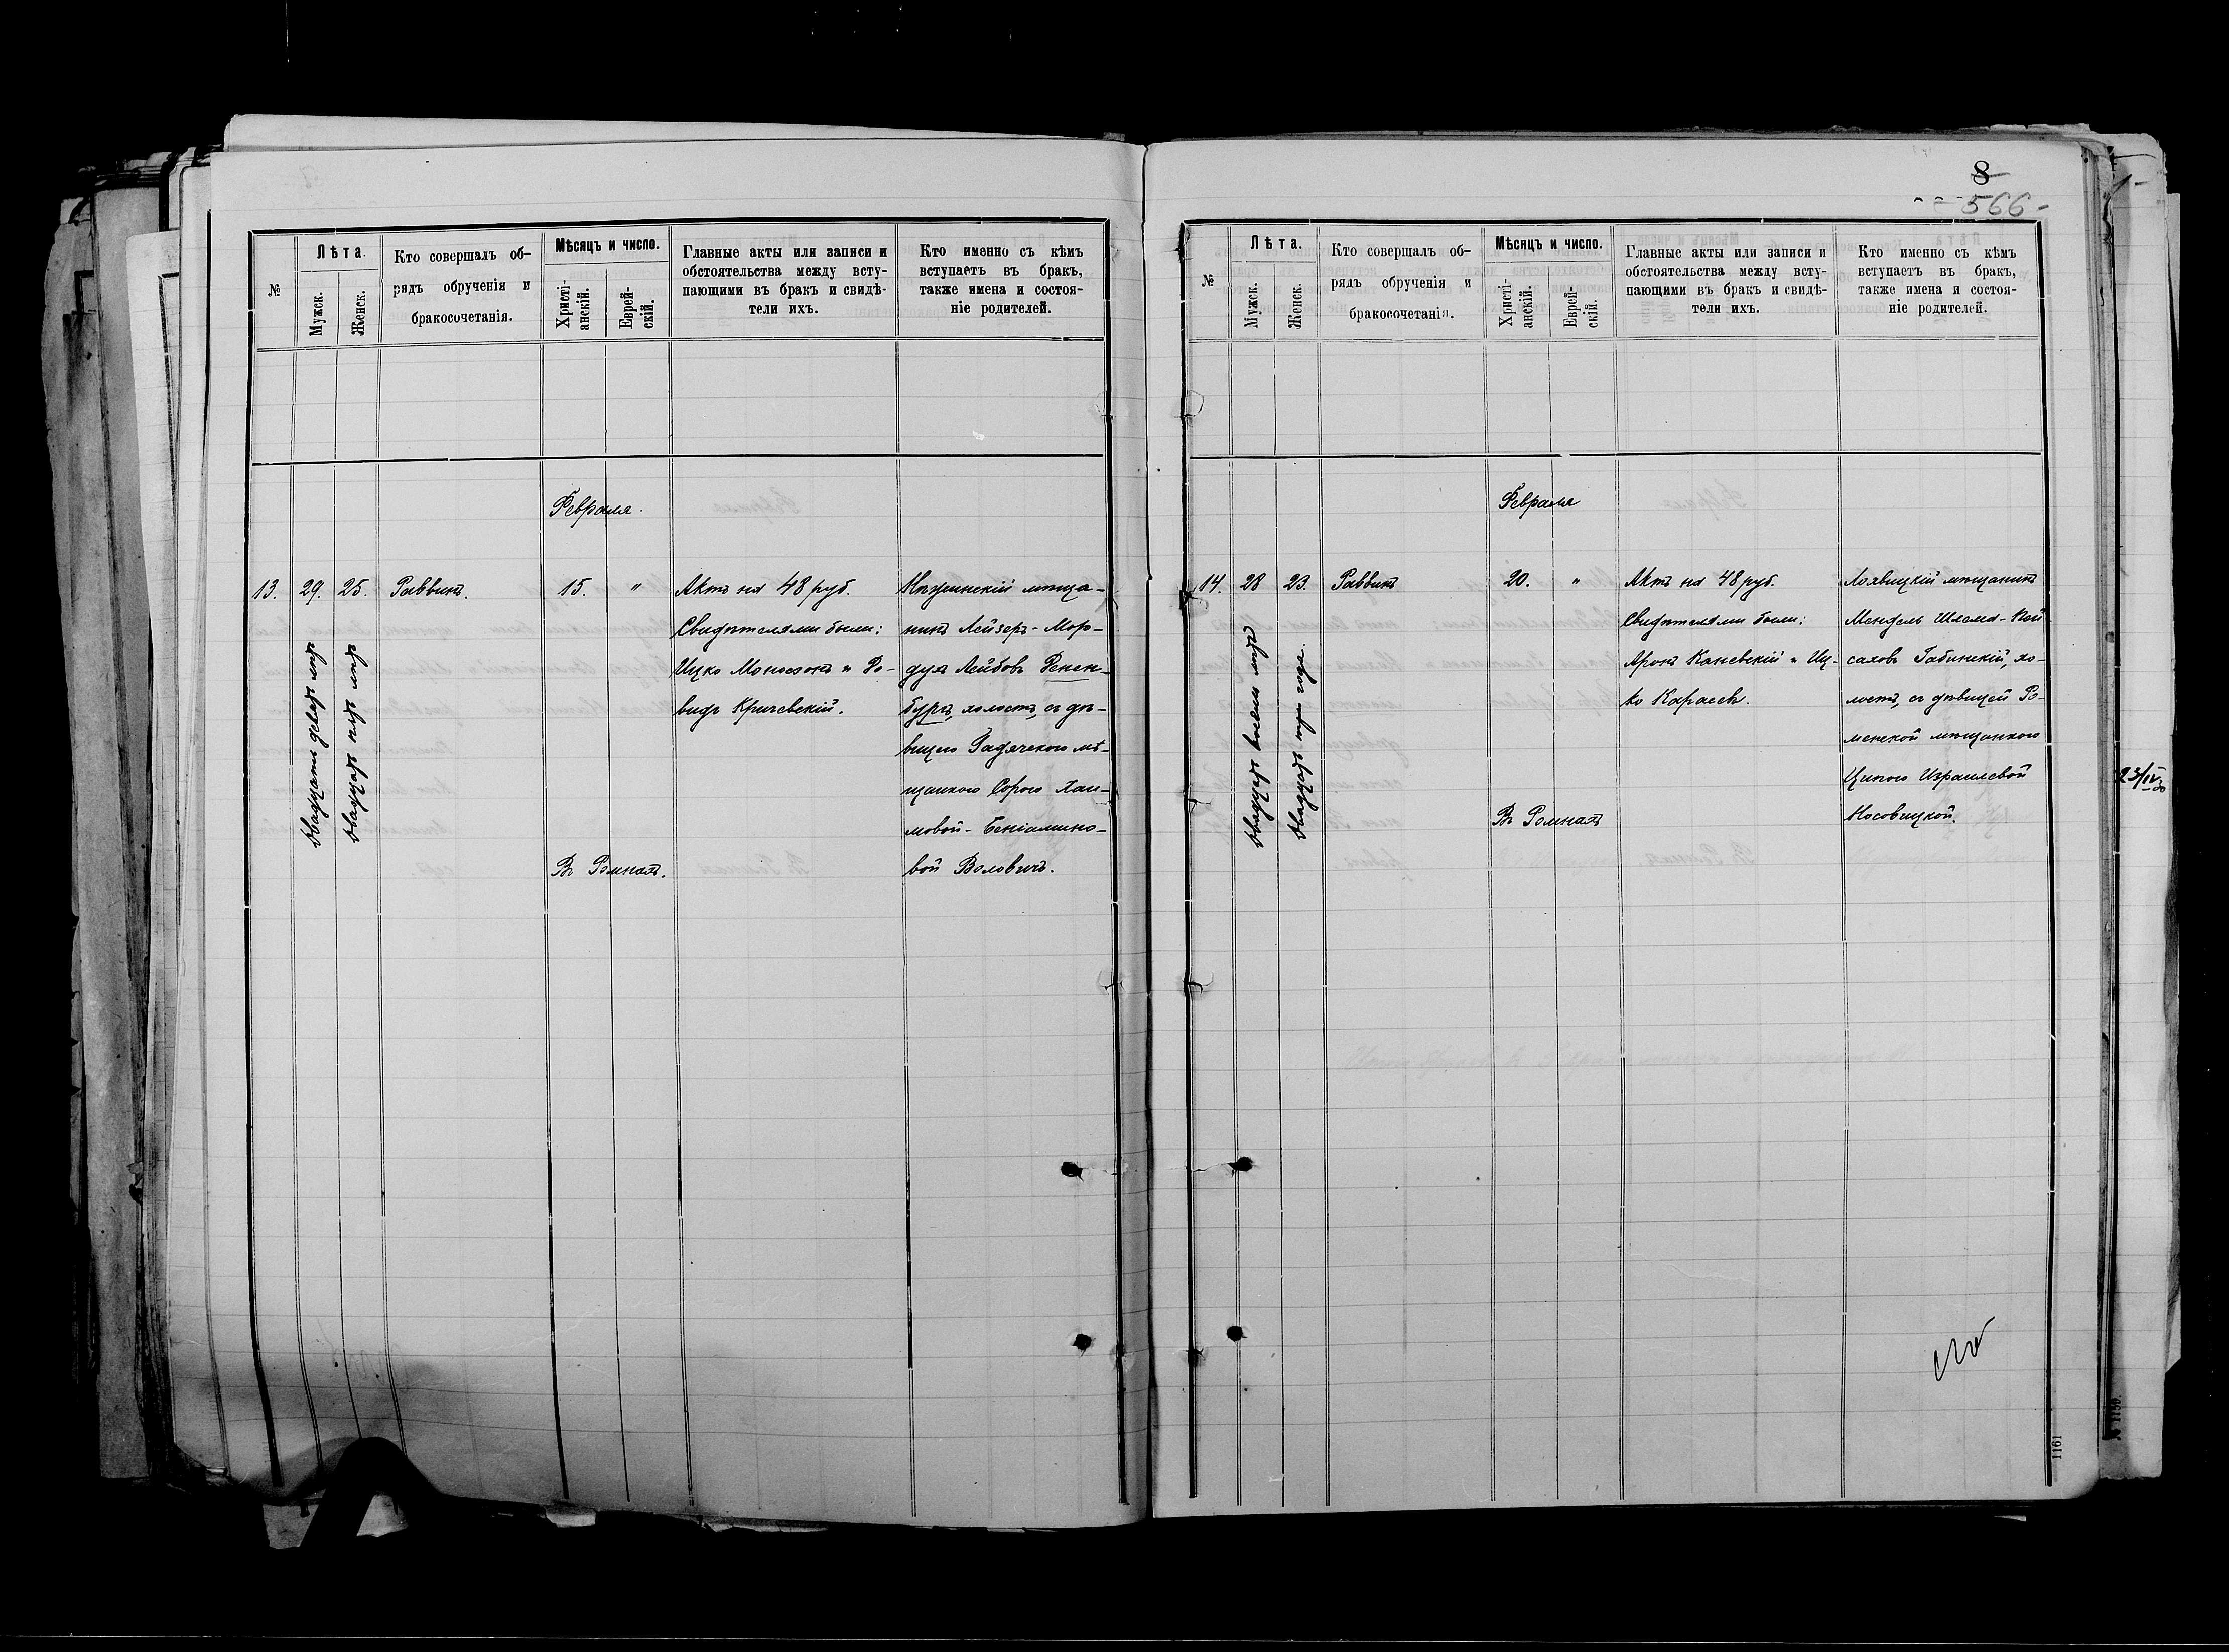 №
Лѣта.
Мужск.
Женск.
Кто совершалъ об-
рядъ обрученія и
бракосочетанія.
Мѣсяцъ и число.
Христі-
анскій.
Еврей-
скій.
Главные акты или записи и
обстоятельства между всту-
пающими въ бракъ и свидѣ-
тели ихъ.
Кто именно съ кѣмъ
вступаетъ въ бракъ,
также имена и состоя-
ніе родителей.
Февраля.
13.
29.
двадцать девять лѣтъ
25.
двадцать пять лѣтъ
Раввинъ.
15.
"
Въ Ромнахъ.
Актъ на 48 руб.
Свидѣтелями были:
Ицко Моносзонъ и До-
видъ Кричевскій.
Нѣжинскій мѣща-
нинъ Лейзеръ-Мор-
духъ Лейбовъ
бургъ, холостъ, съ дѣ-
вицею Гадячскою мѣ-
щанкою Сорою Хаи-
мовой-Беніамино-
вой Воловичъ.
8
566
№
Лѣта.
Мужск.
Женск.
Кто совершалъ об-
рядъ обрученія и
бракосочетанія.
Мѣсяцъ и число.
Христі-
анскій.
Еврей-
скій.
Главные акты или записи и
обстоятельства между всту-
пающими въ бракъ и свидѣ-
тели ихъ.
Кто именно съ кѣмъ
вступаетъ въ бракъ,
также имена и состоя-
ніе родителей.
Февраля
14.
28
двадцать восемь лѣтъ
23.
двадцать три года.
Раввинъ
20.
"
Въ Ромнахъ
Актъ на 48 руб.
Свидѣтелями были:
Аронъ Каневскій и Иц-
ко Карасевъ.
мѣщанинъ
Мендель Шлема-Пей
саховъ Габинскій, хо-
лостъ, съ дѣвицей Ро-
менской мѣщанкою
Ципою Израилевой
Носовицкой.
23/IV
1161
№ 1159.